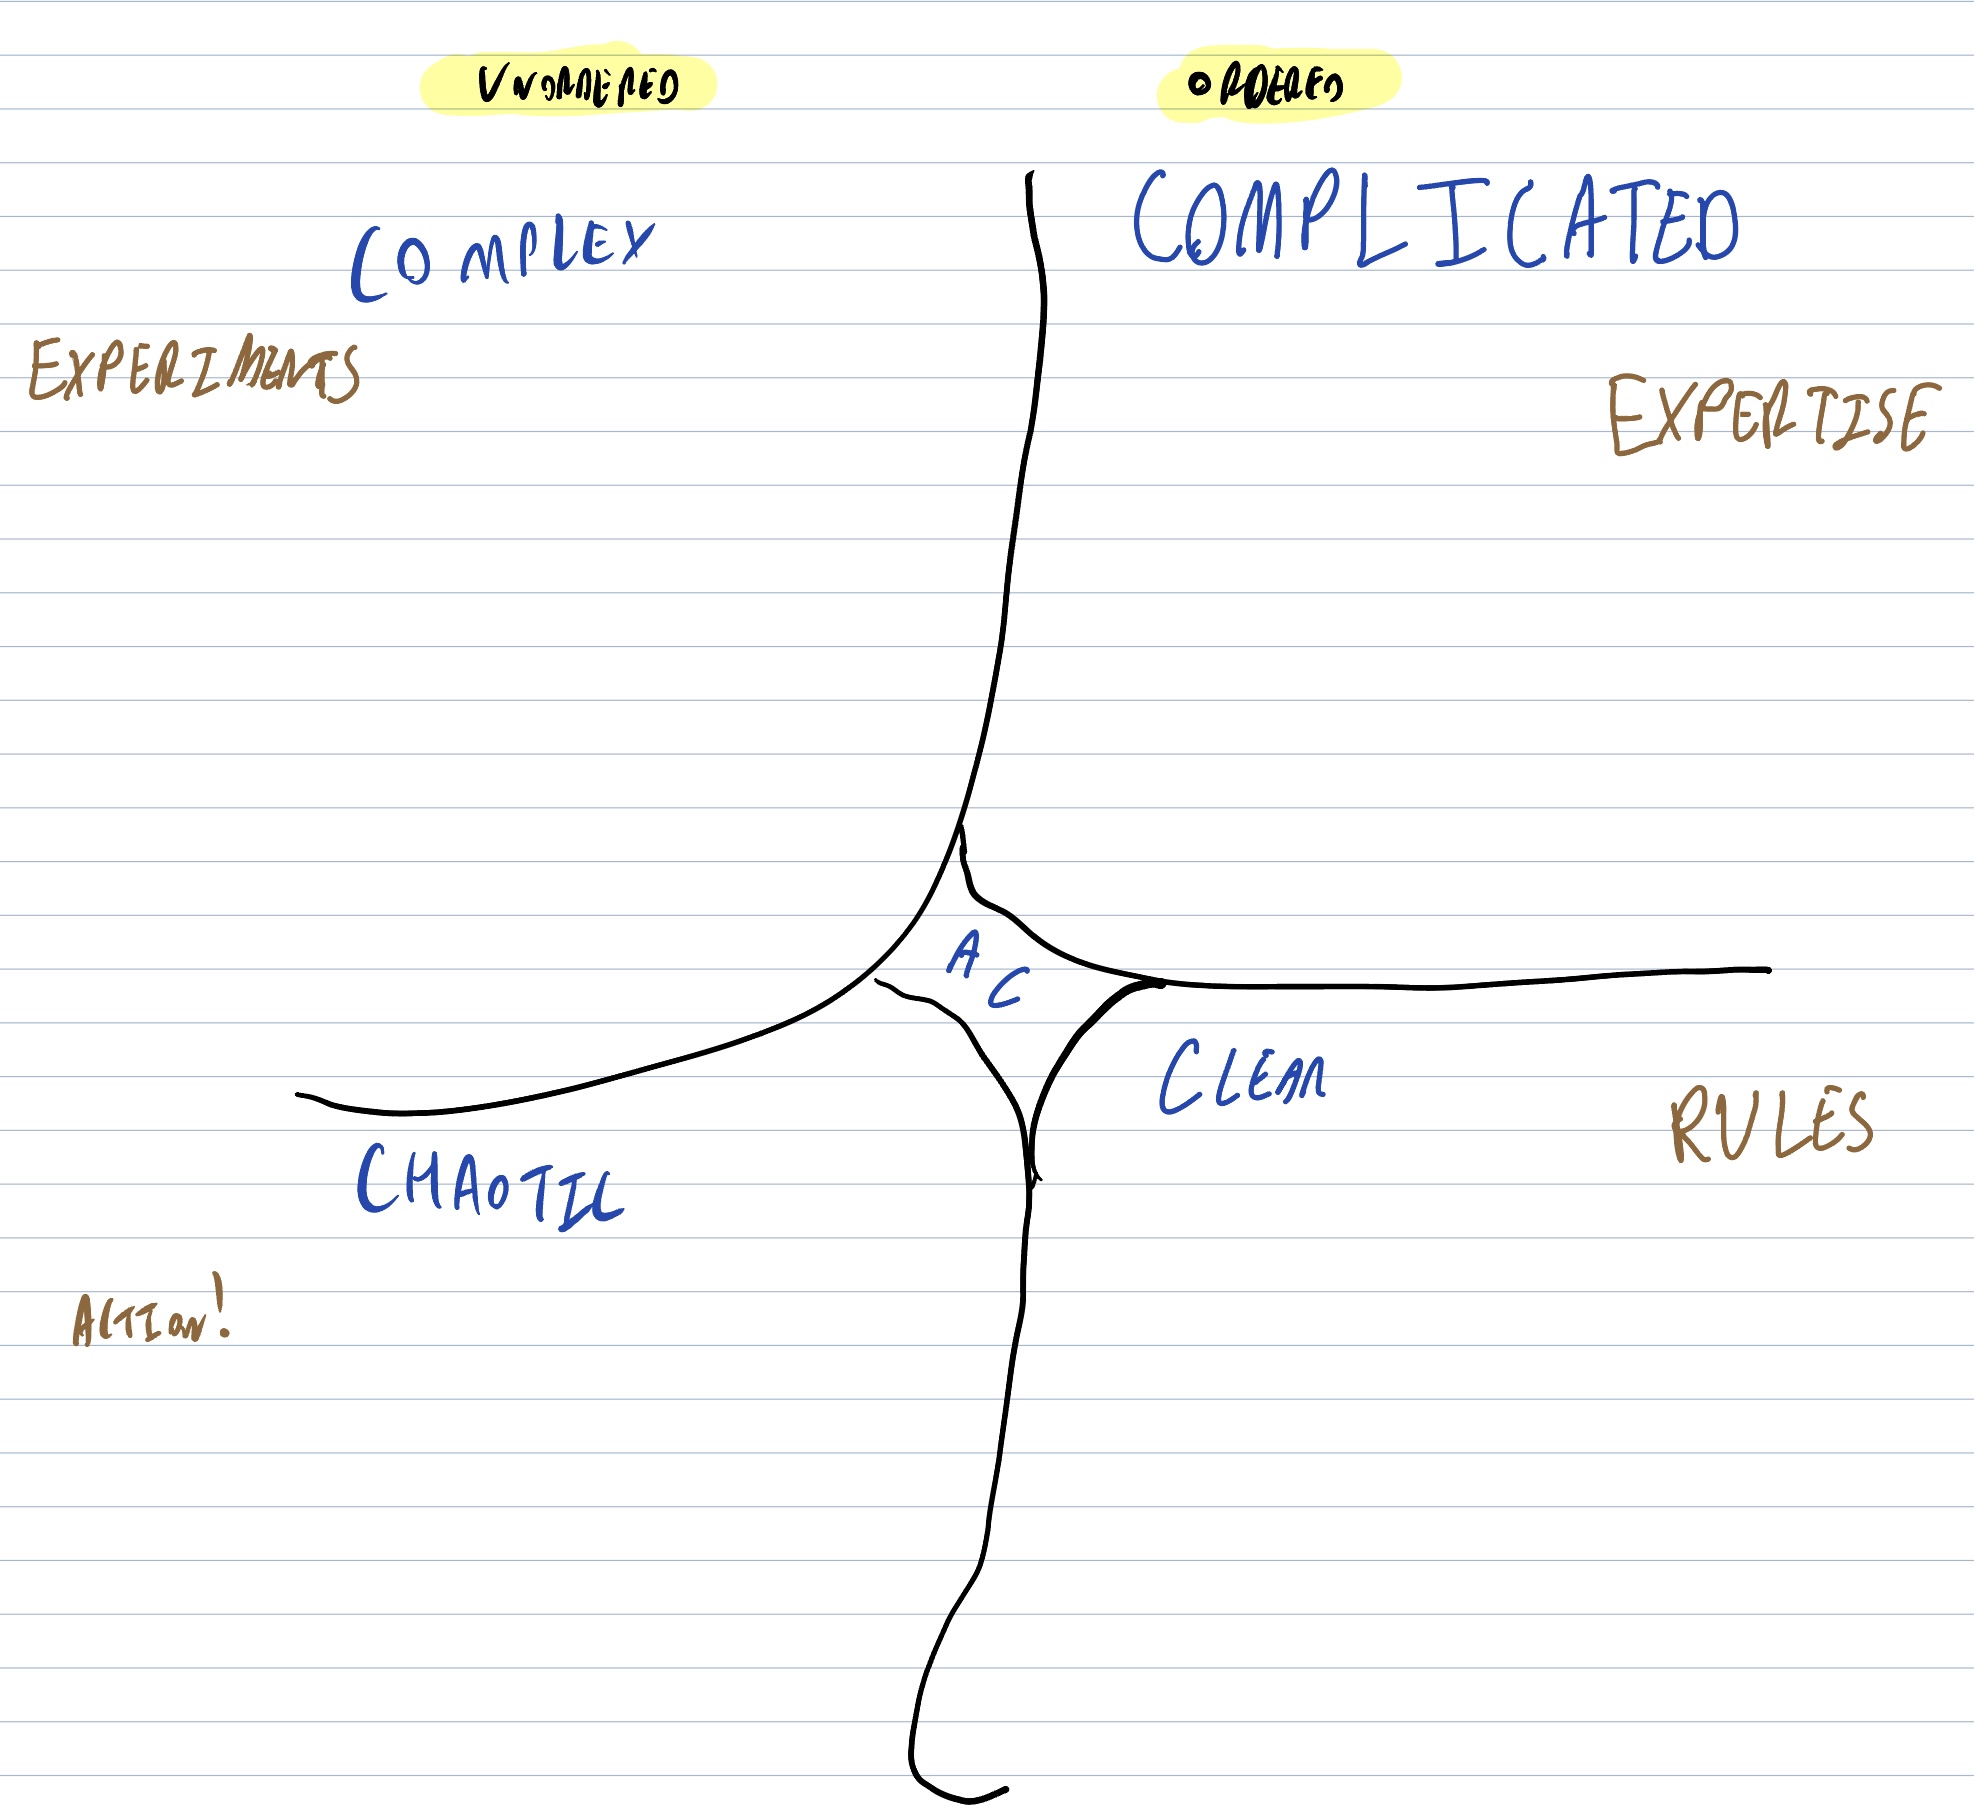 UNORDERED
ORDERED
COMPLEX
COMPLICATED
EXPERIMENTS
EXPERTISE
A
C
CLEAR
RULES
CHAOTIC
ACTION!